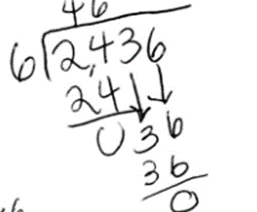 46
6 2,436
24
036
36
0